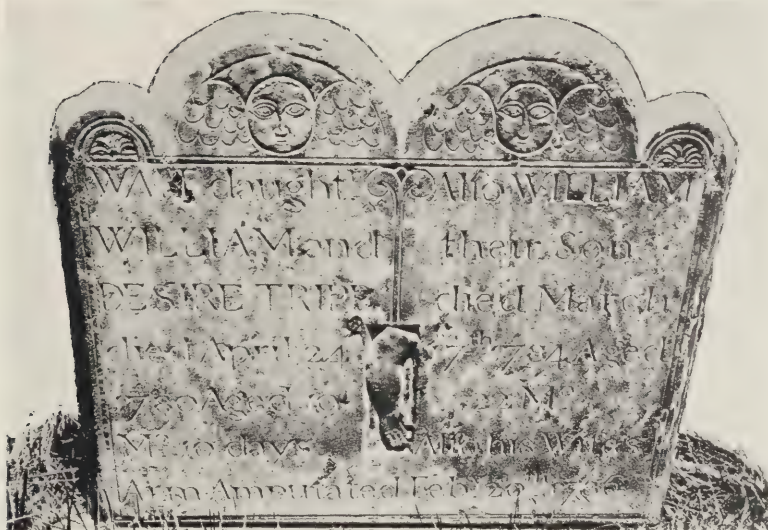 WAIT daught.
WILLIAM and
DESIRE TRIPP
died April 24
1780 Aged 10
Mo. 10 days
Alſo WILLIAM
their Son
died March
7th 1784 Aged
22 Mo.
Alſo his Wifes
Arm Amputated Feb. 20th